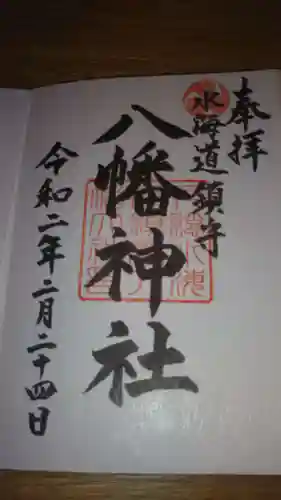 奉拝
水海道鎮守
八幡神社
令和二年二月二十四日